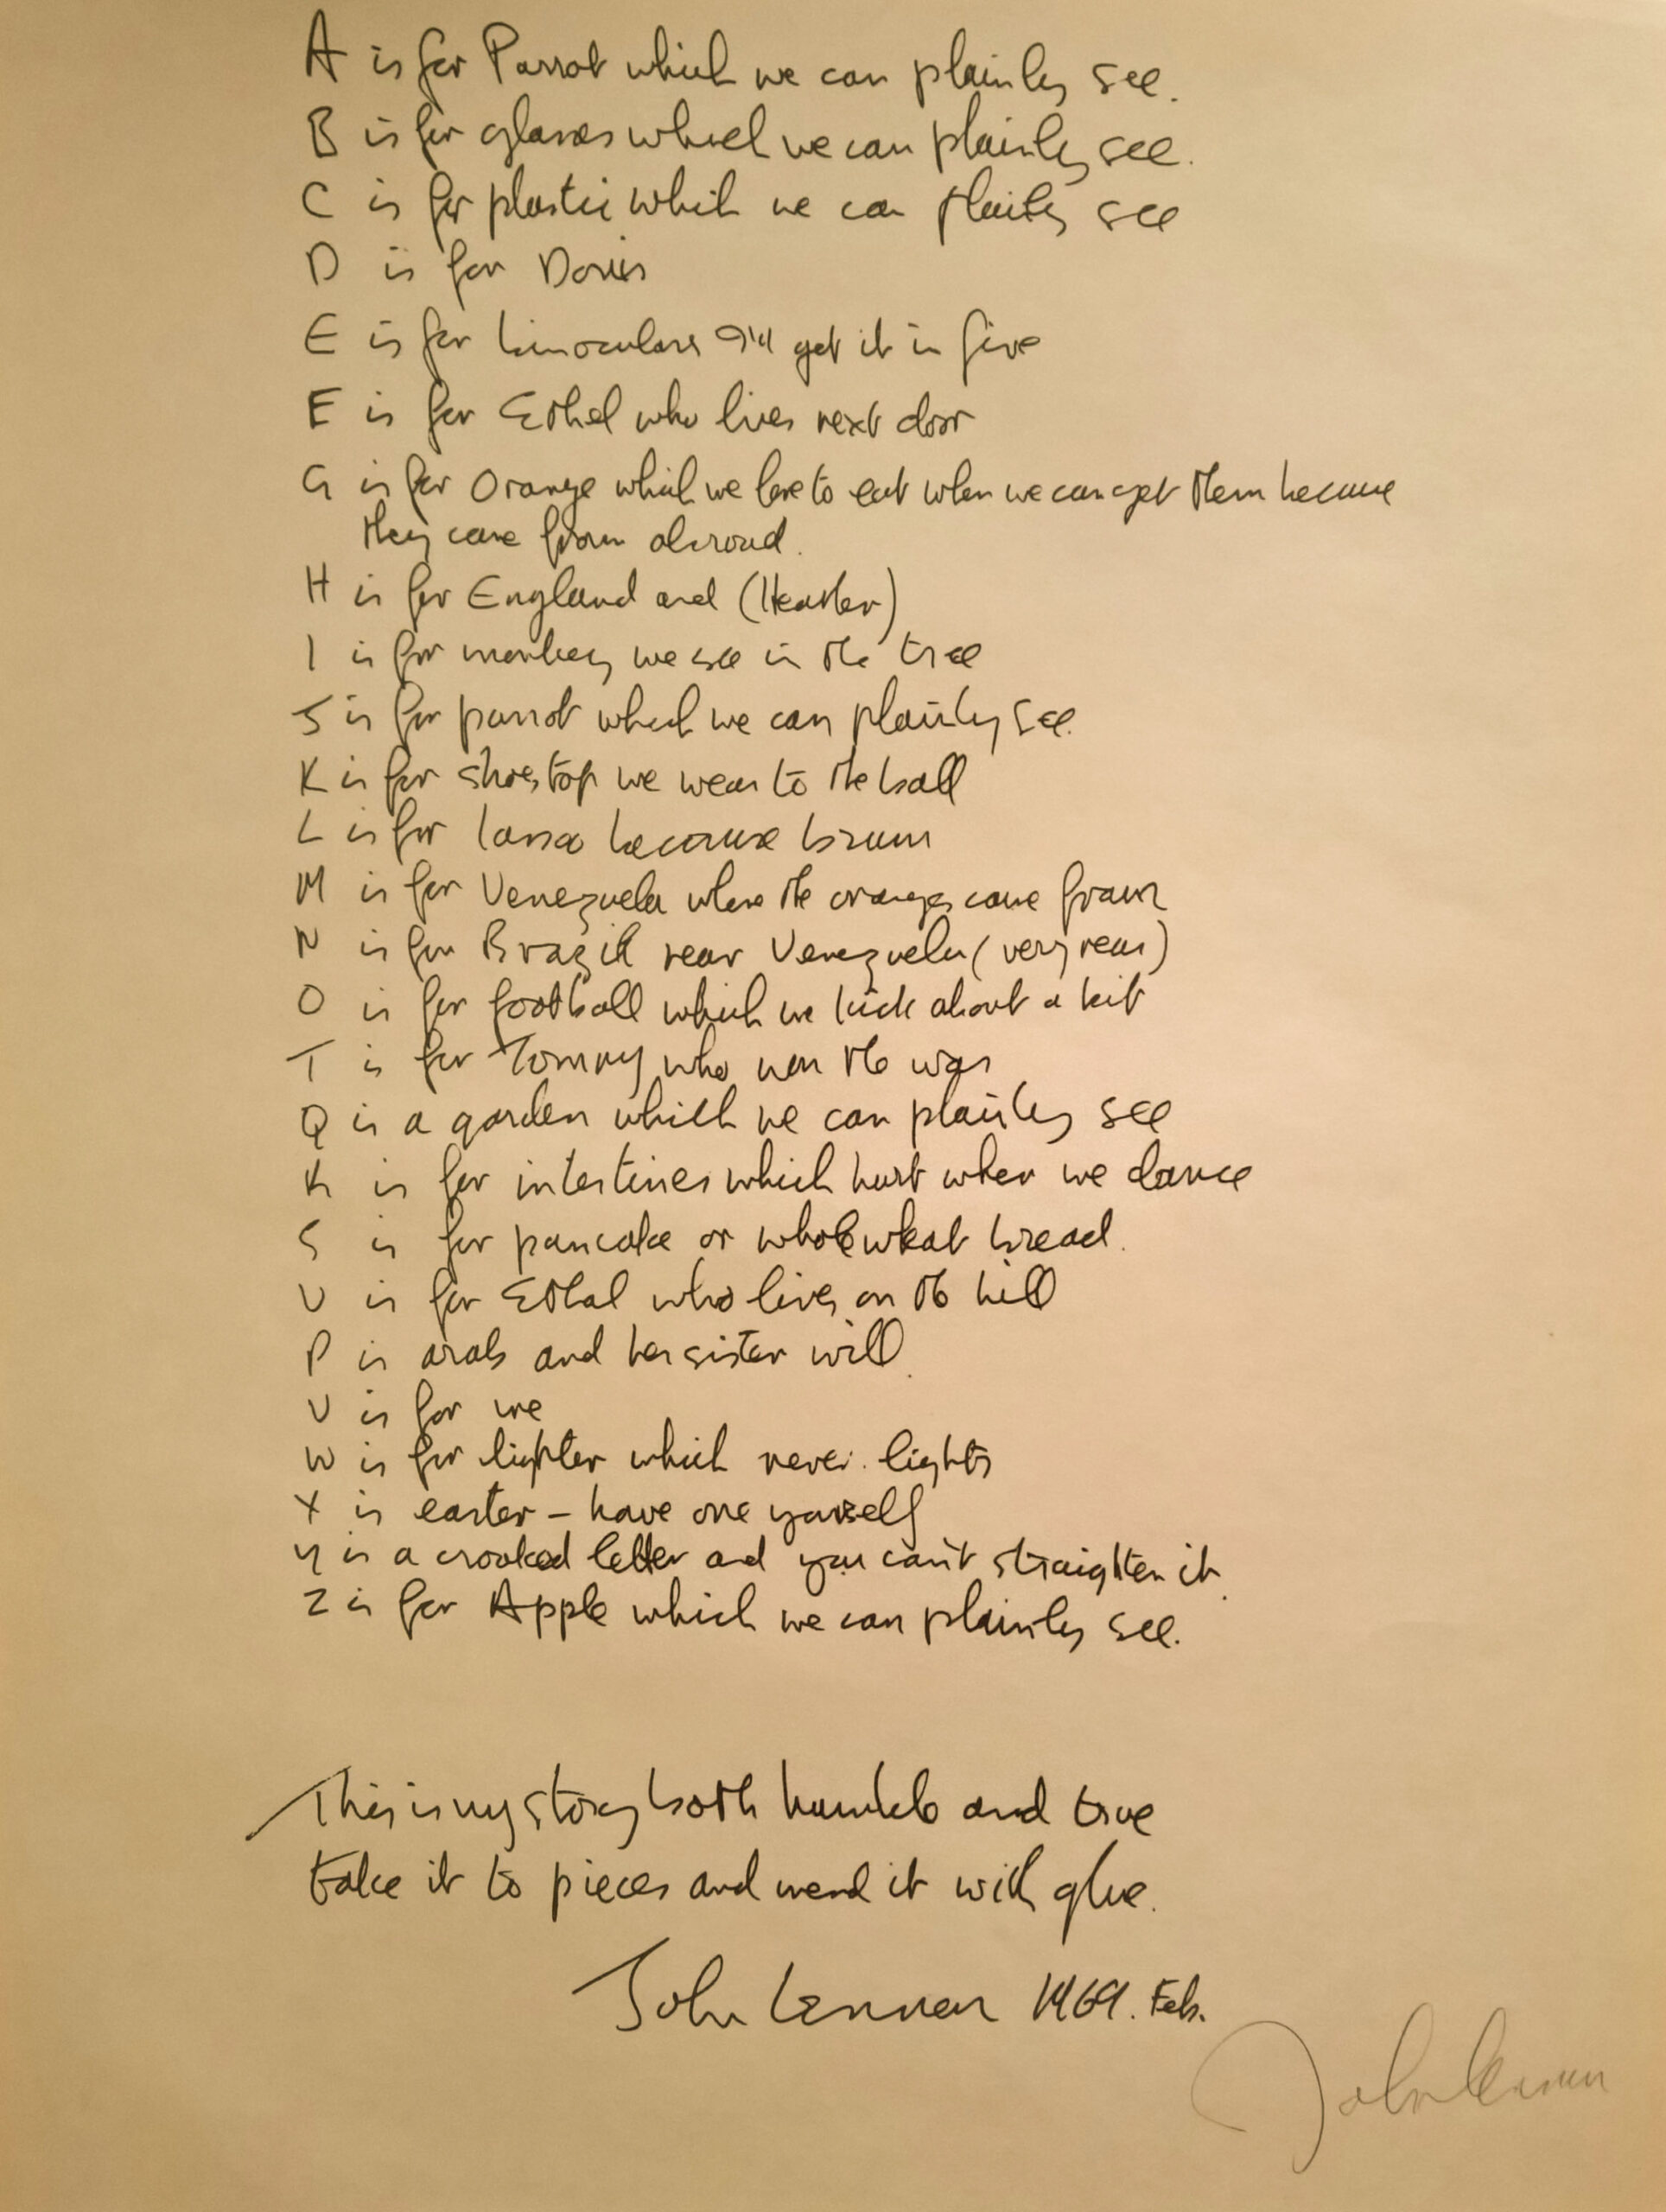 A is for Parrot which we can plainly see.
B is for glasses which we can plainly see.
C is for plastic which we can plainly see
D is for Doris
E is for binoculars I'll get it in five
F is for Ethel who lives next door
G is for Orange which we love to eat when we can get them because
they come from abroad.
H is for England and (Heather)
I is for monkey we see in the tree
J is for parrot which we can plainly see.
K is for shoestop we wear to the ball
L is for lanoo because brown
M is for Venezuela where the oranges come from
N is for Brazil near Venezuela (very near)
O is for football which we kick about a bit
T is for Tommy who won the war
Q is a garden which we can plainly see
R is for intestines which hurt when we dance
S is for pancake or whole wheat bread.
U is for Ethel who lives on the hill
P is arab and her sister will.
V is for me
W is for lighter which never lights
X is easter – have one yourself
Y is a crooked letter and you can't straighten it
Z is for Apple which we can plainly see.
This is my story both humble and true
take it to pieces and mend it with glue.
John Lennon 1969. Feb.
John Lennon